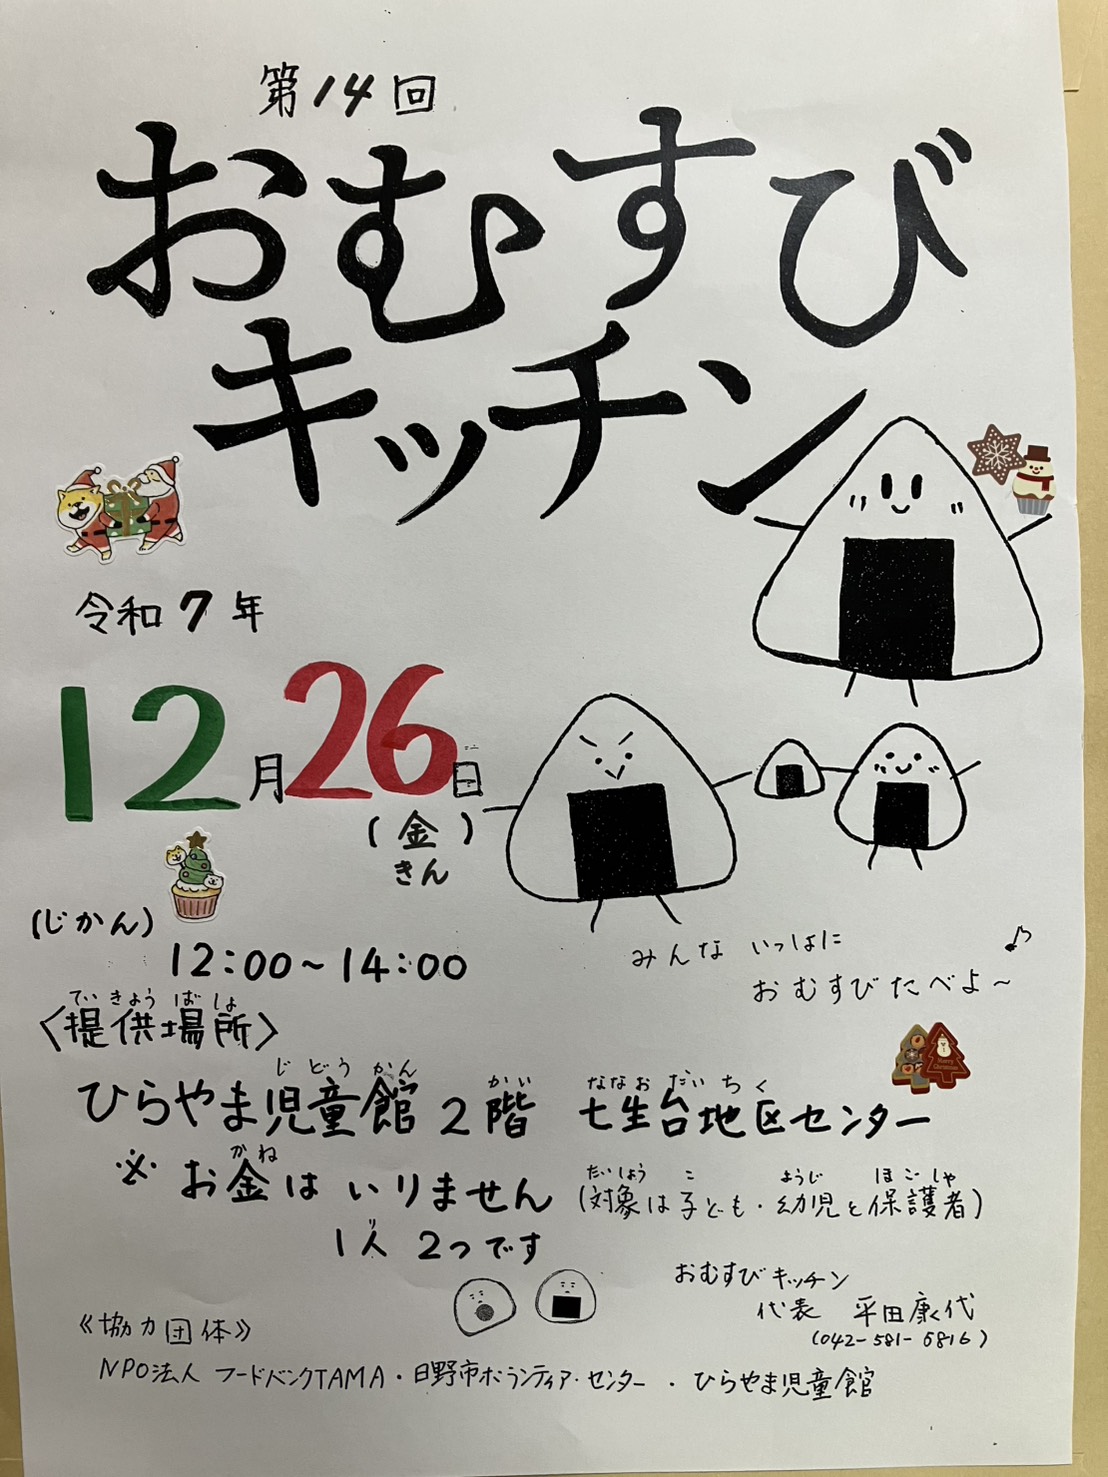 第14回
おむすび
キッチン
令和7年
12月26日
(金)
きん
(じかん)
12:00~14:00
みんな いっしょに
おむすびたべよ~
ていきょうばしょ
〈提供場所〉
じどうかん かい ななおだいちく
ひらやま児童館 2階 七生台地区センター
かね
※お金はいりません
たいしょう こ ようじ ほごしゃ
(対象は子ども・幼児と保護者)
り
1人 2つです
おむすびキッチン
代表 平田康代
(042-581-6816)
《協力団体》
NPO法人 フードバンクTAMA・日野市ボランティア・センター・ひらやま児童館